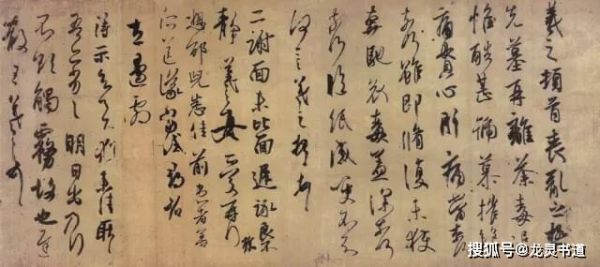 羲之頓首喪亂之極
先墓再離荼毒追
惟酷甚號慕摧絕
痛貫心肝痛當奈何
奈何雖即脩復未獲
奔馳哀毒益深奈何
奈何臨紙感哽不知
何言羲之頓首頓首
二謝面未比面遲詠良不
靜羲之女愛再拜
想邵兒悉佳前患者善
所送議當試尋省
左邊劇
得示知足下猶未佳耿耿
吾亦劣劣明日出乃行
不欲觸霧故也遲
散王羲之頓首
搜狐号@龙灵书道